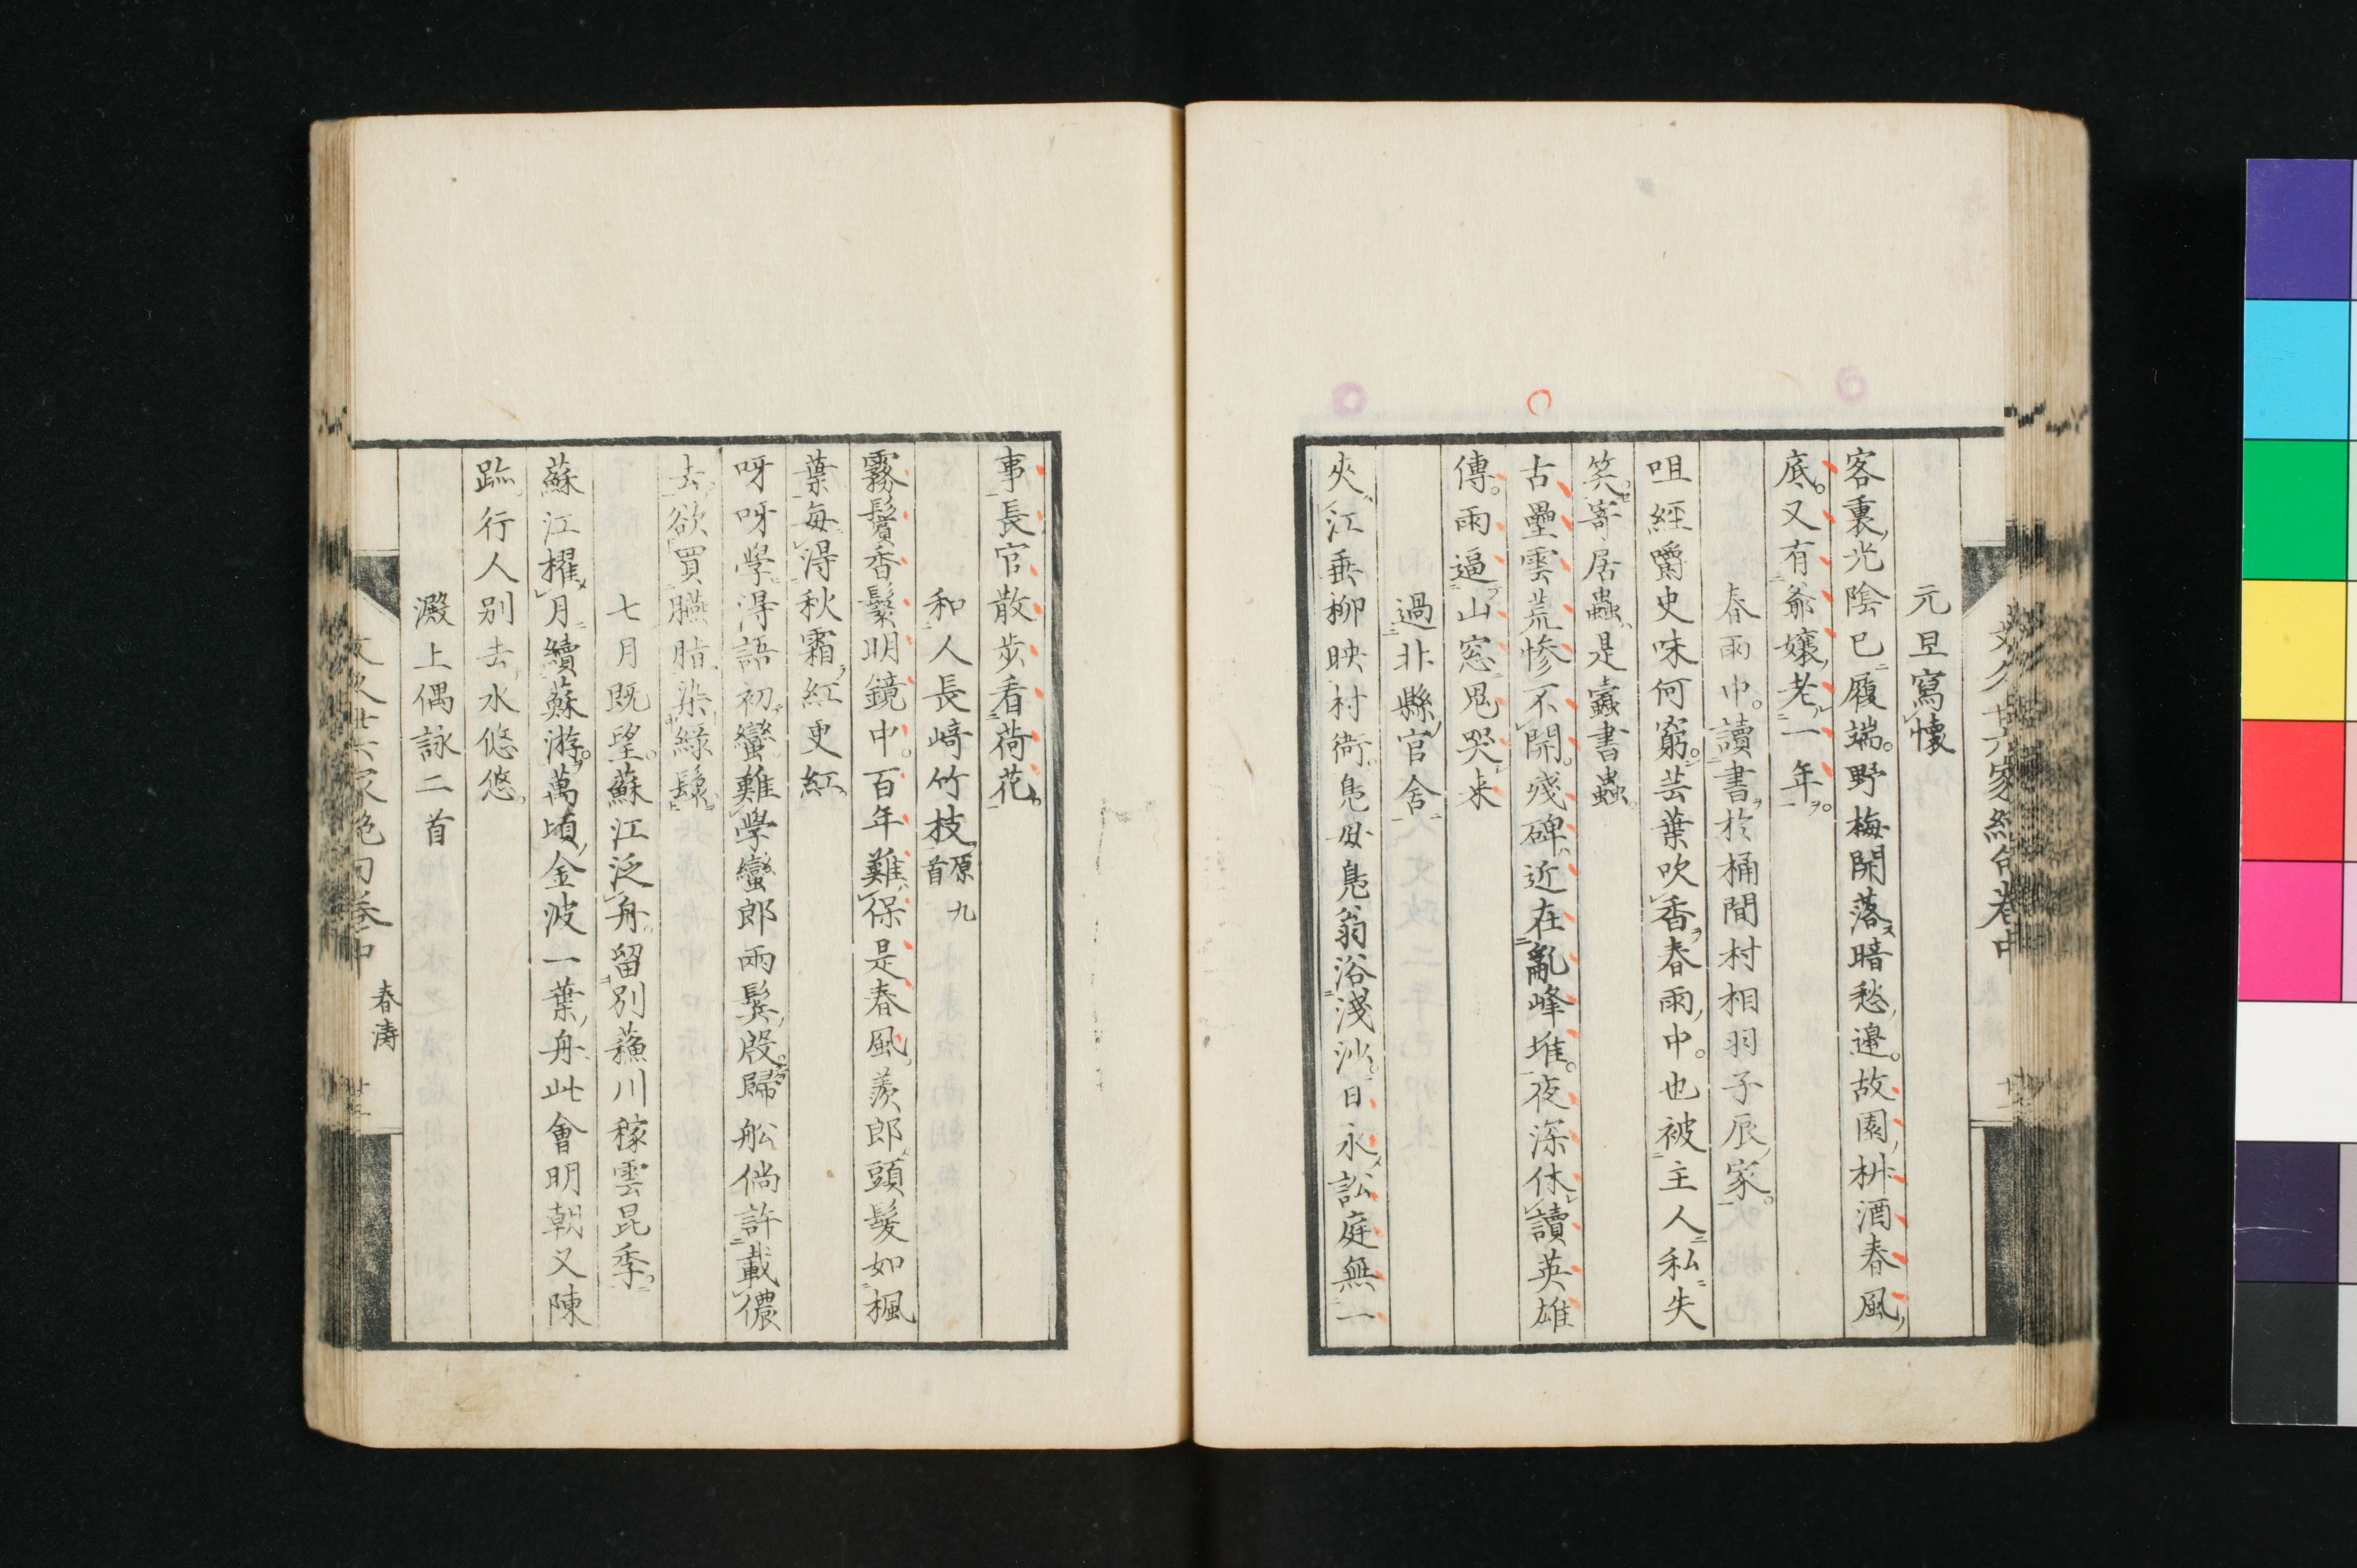 元旦寫懷
客裏光陰已履端。野梅開落暗愁邊。故園椒酒春風
底。又有爺孃老一年。
春雨中。讀書於桶間村相羽子辰家。
咀經嚼史味何窮。芸葉吹香春雨中。也被主人私失
笑。寄居蟲是蠹書蟲。
古壘雲荒慘不開。殘碑近在亂峰堆。夜深休讀英雄
傳。雨逼山窓鬼哭来
過北縣官舍
夾江垂柳映村衙。鳧母鳧翁浴淺沙。日永訟庭無一
事長官散步看荷花。
和人長崎竹枝 原九首
霧鬢香鬟明鏡中。百年難保是春風。羨郎頭髮如楓
葉每得秋霜紅更紅
呀呀學得語初蠻難學蠻郎兩鬢殷歸船倘許載儂
去。欲買臙脂染緑鬟
七月既望。蘇江泛舟。留別蘓川稼雲昆季。
蘇江櫂月續蘇游。萬頃金波一葉舟此會明朝又陳
跡。行人别去水悠悠。
澱上偶詠二首
文久廿六家絶句卷中
春濤